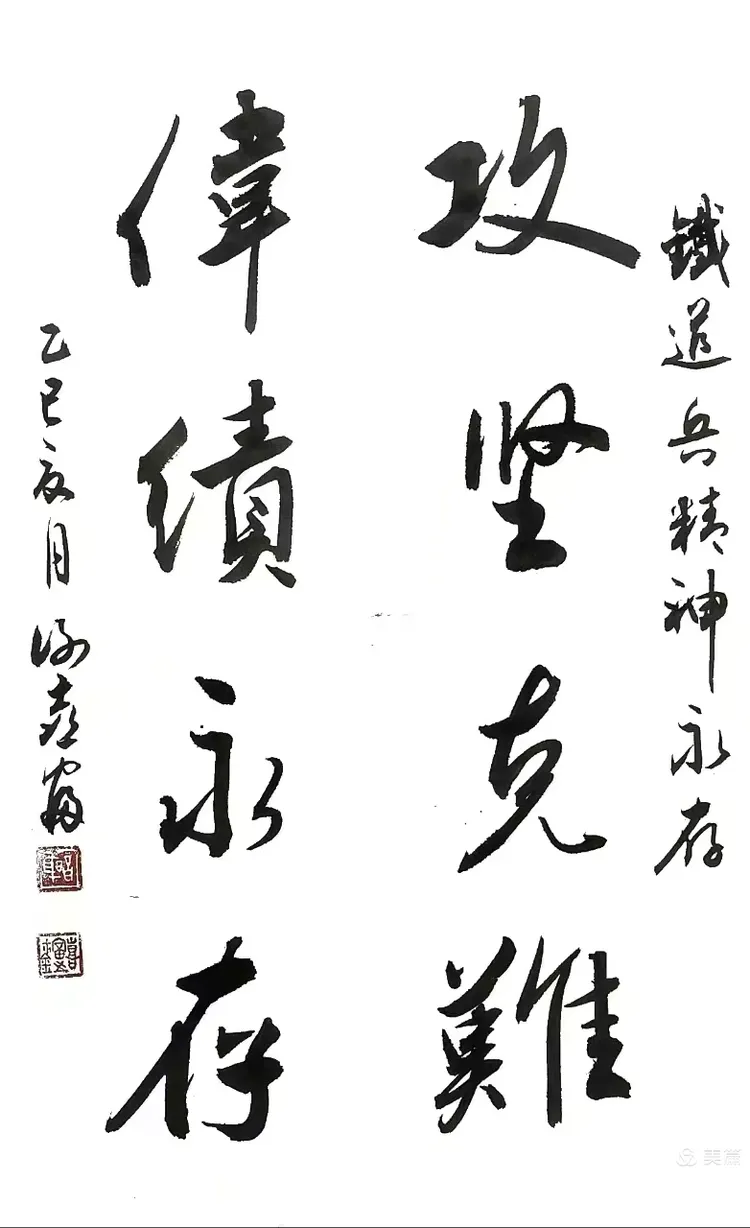 鐵道兵精神永存
攻坚克難
偉績永存
乙巳亥月
美篇